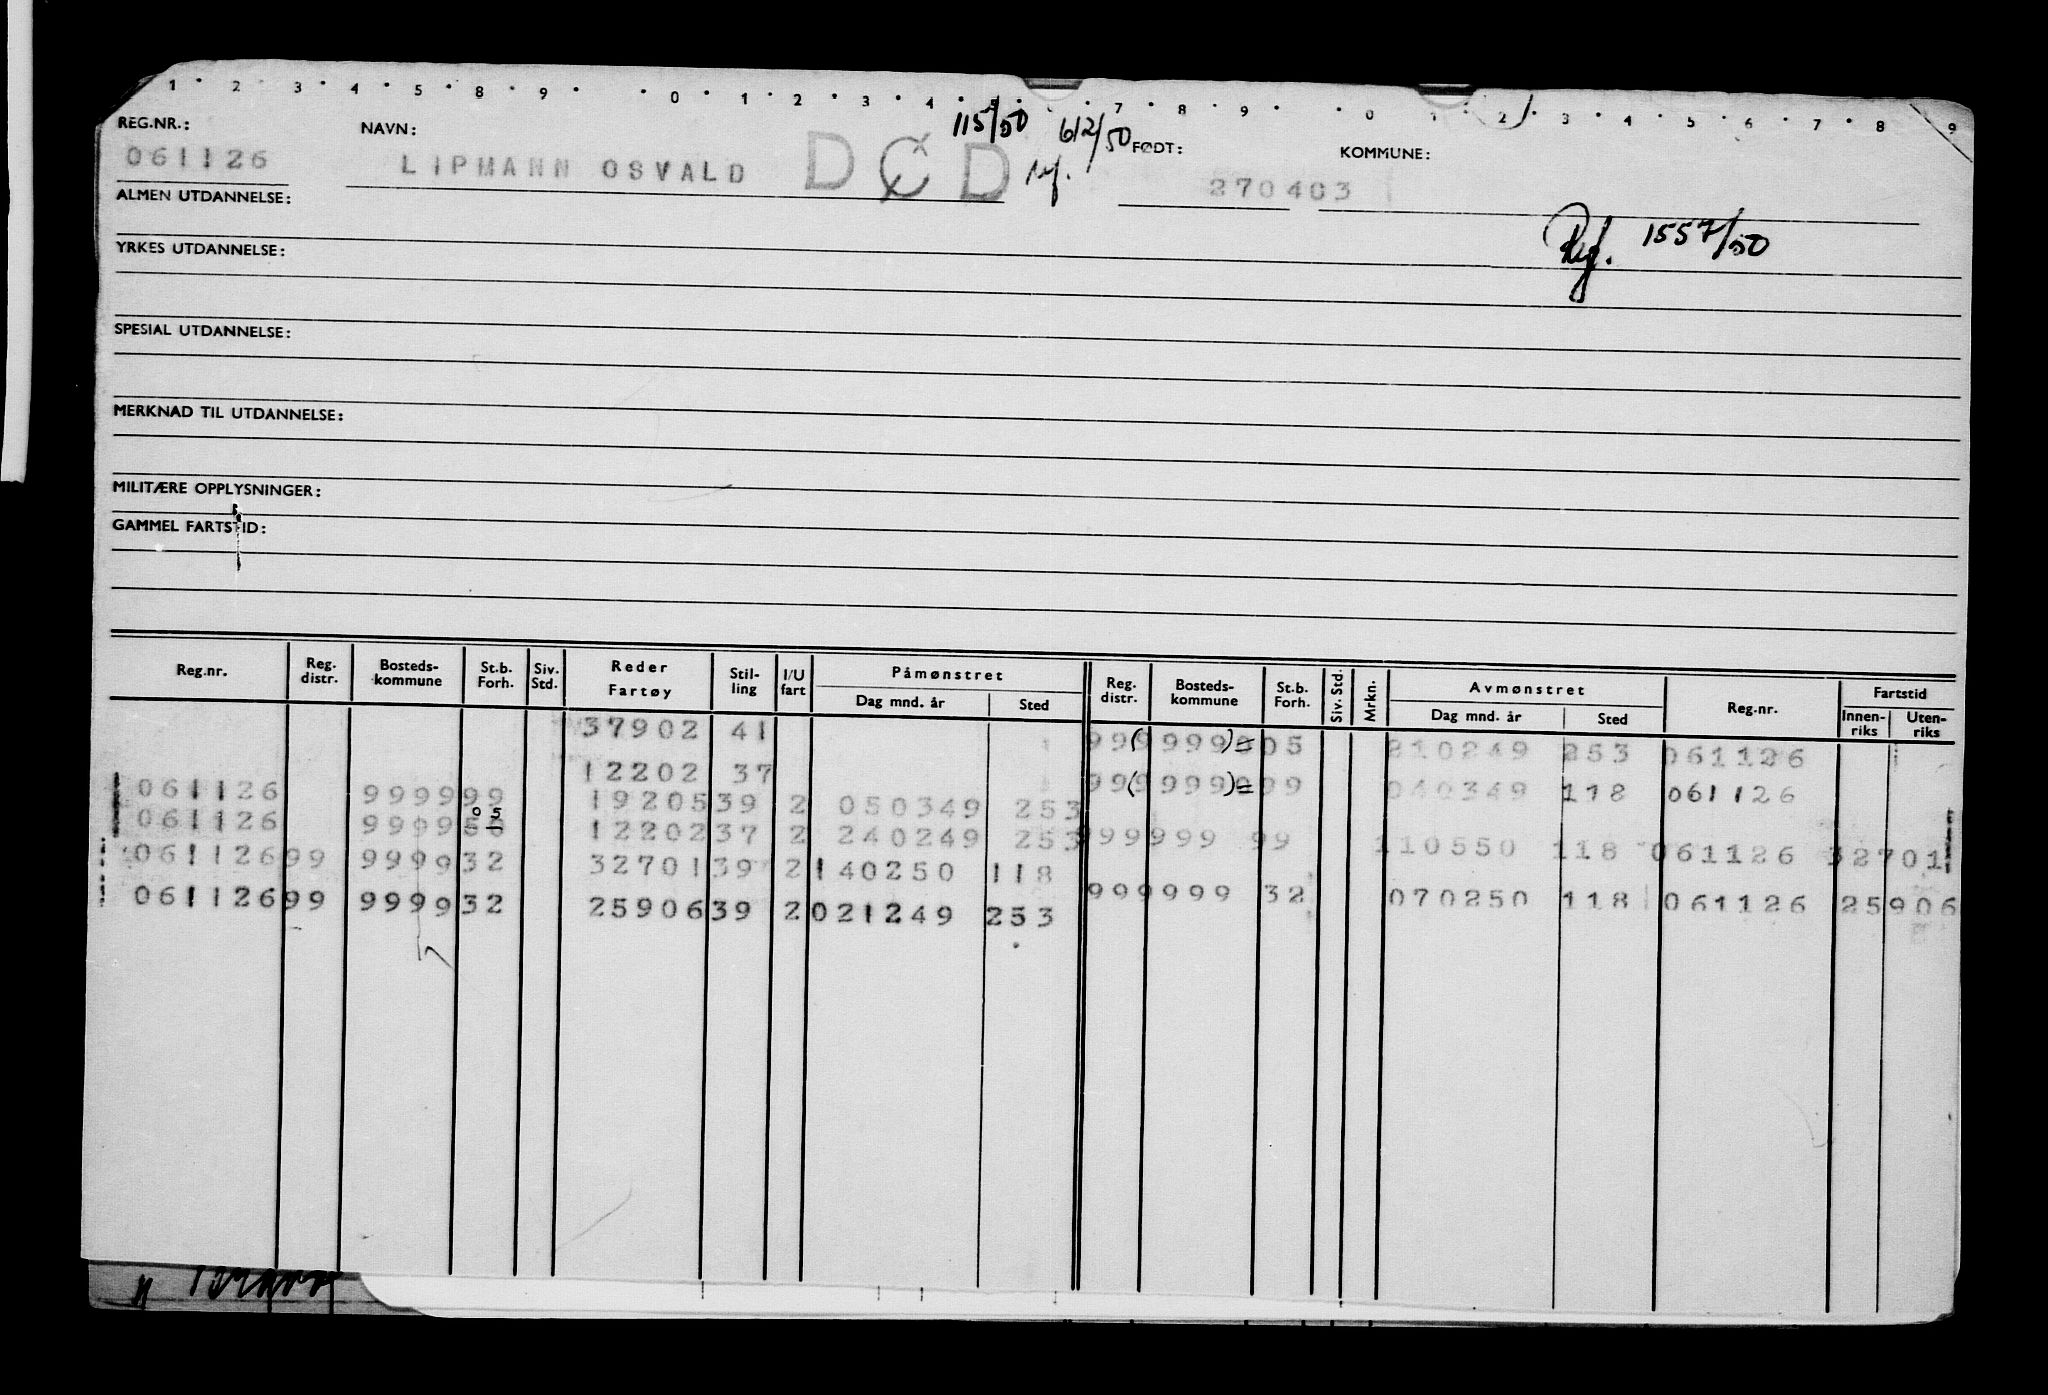 1 2 3 4 5 8 9 0 1 2 3 4 5 7 8 9 0 1 2 3 4 5 6 7 8 9
REG.NR.: NAVN: 115/50 612/50 FØDT: KOMMUNE:
061126 LIPMANN OSVALD D Ø D 270403
ALMEN UTDANNELSE:
Ref. 1557/50
YRKES UTDANNELSE:
SPESIAL UTDANNELSE:
MERKNAD TIL UTDANNELSE:
MILITÆRE OPPLYSNINGER:
GAMMEL FARTSTID:
Reg.nr. Reg. distr. Bosteds-kommune St.b. Forh. Siv. Std. Reder Fartøy Stil-ling I/U fart Påmønstret Dag mnd. år Sted Reg. distr. Bosteds-kommune St.b. Forh. Siv. Std. Mrkn. Avmønstret Dag mnd. år Sted Reg.nr. Fartstid Innen-riks Uten-riks
37902 41 99(9999)= 05 210249 253 061126
12202 37 99(9999)= 99 040349 118 061126
061126 999999 19205 39 2 050349 253
05
061126 999950 12202 37 2 240249 253 999999 99 110550 118 061126 32701
061126 99 9999 32 32701 39 2 140250 118
061126 99 9999 32 25906 39 2 021249 253 999999 32 070250 118 061126 25906